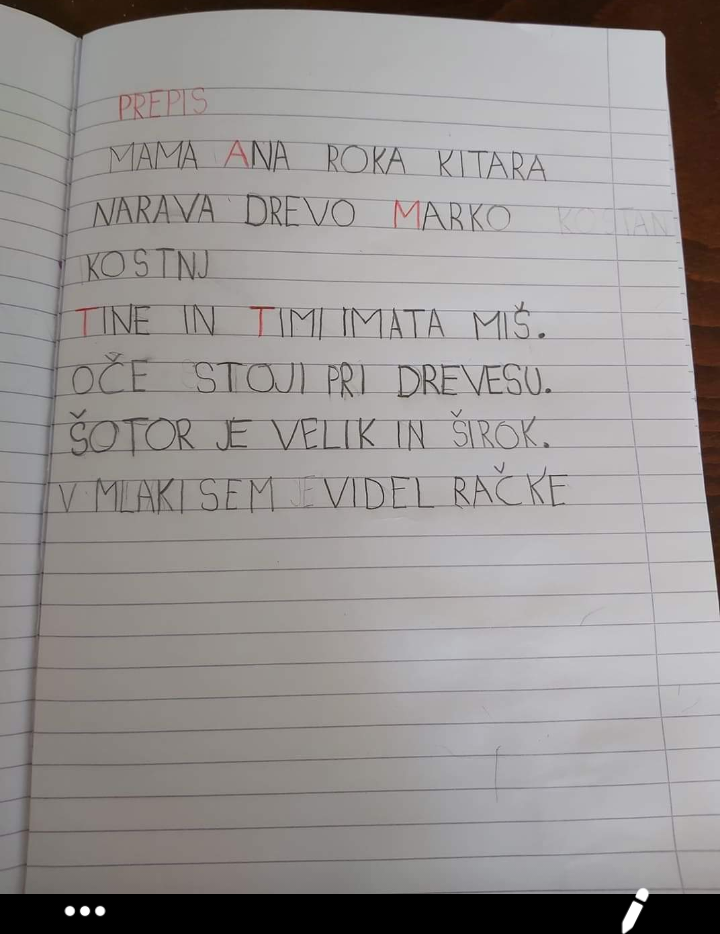 PREPIS
MAMA ANA ROKA KITARA
NARAVA DREVO MARKO KOSTAN
KOSTNJ
TINE IN TIMI IMATA MIŠ.
OČE STOJI PRI DREVESU.
ŠOTOR JE VELIK IN ŠIROK.
V MLAKI SEM JE VIDEL RAČKE